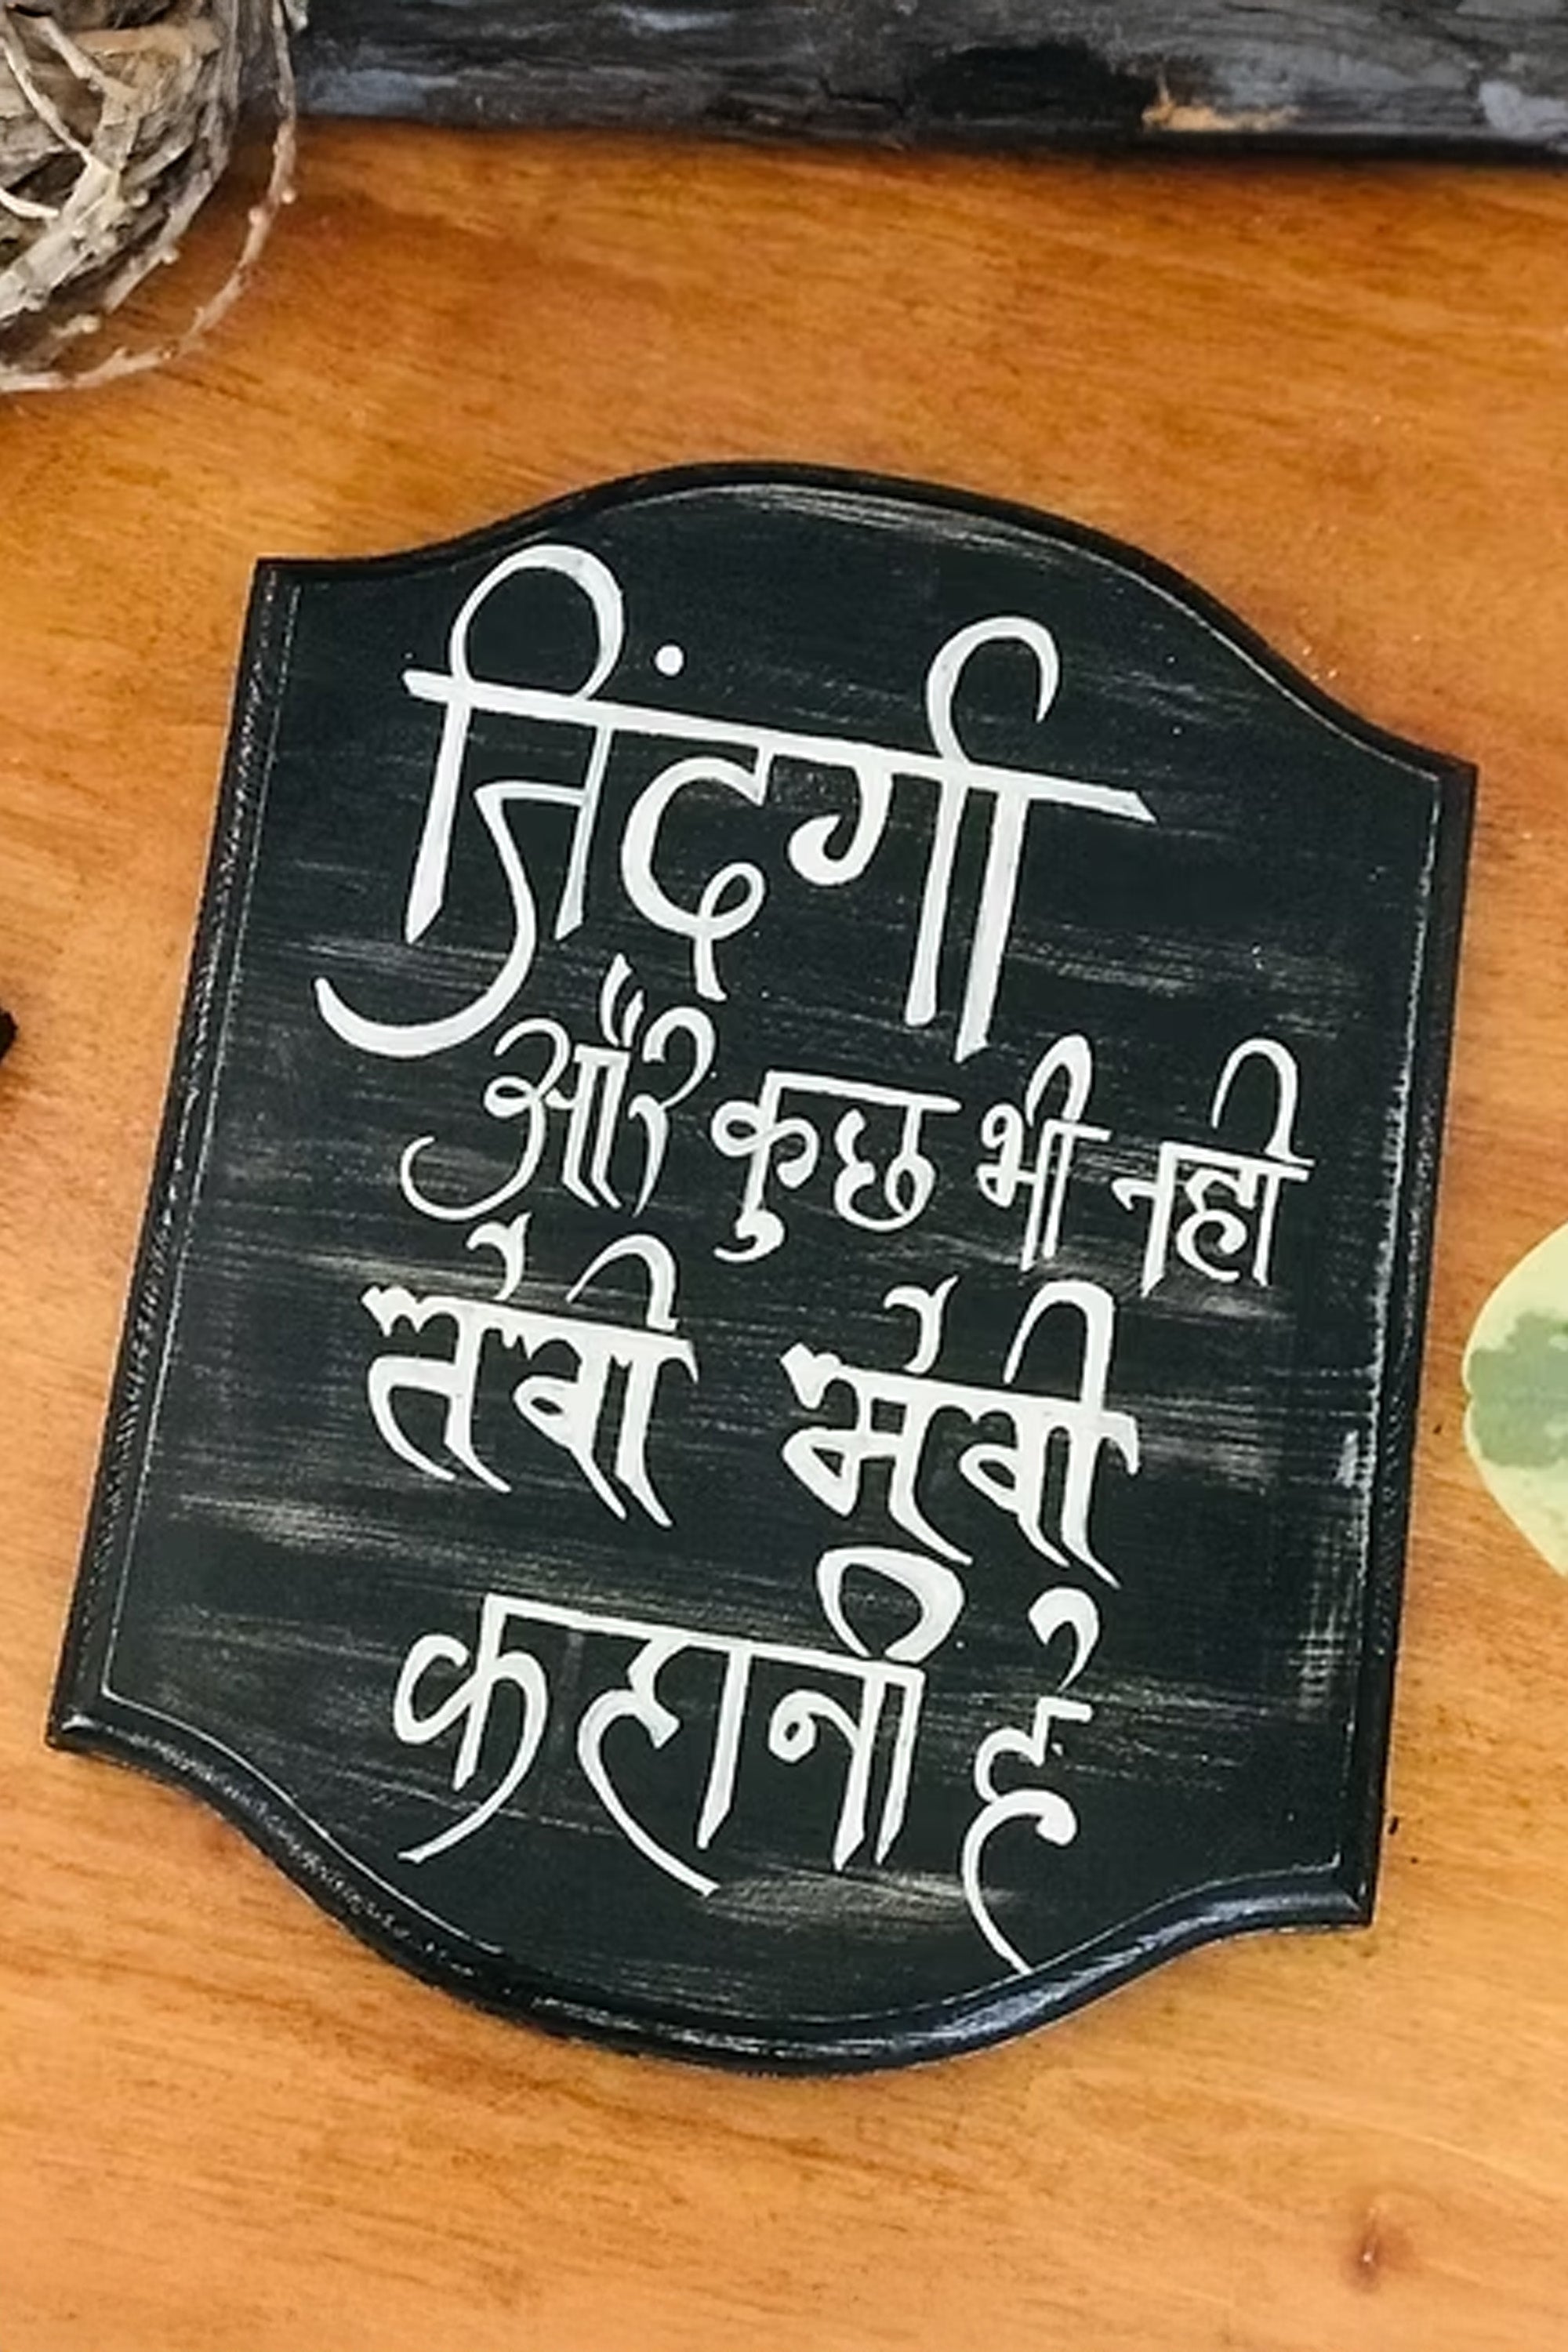 जिंदगी
और कुछ भी नही
तेरी मेरी
कहानी है